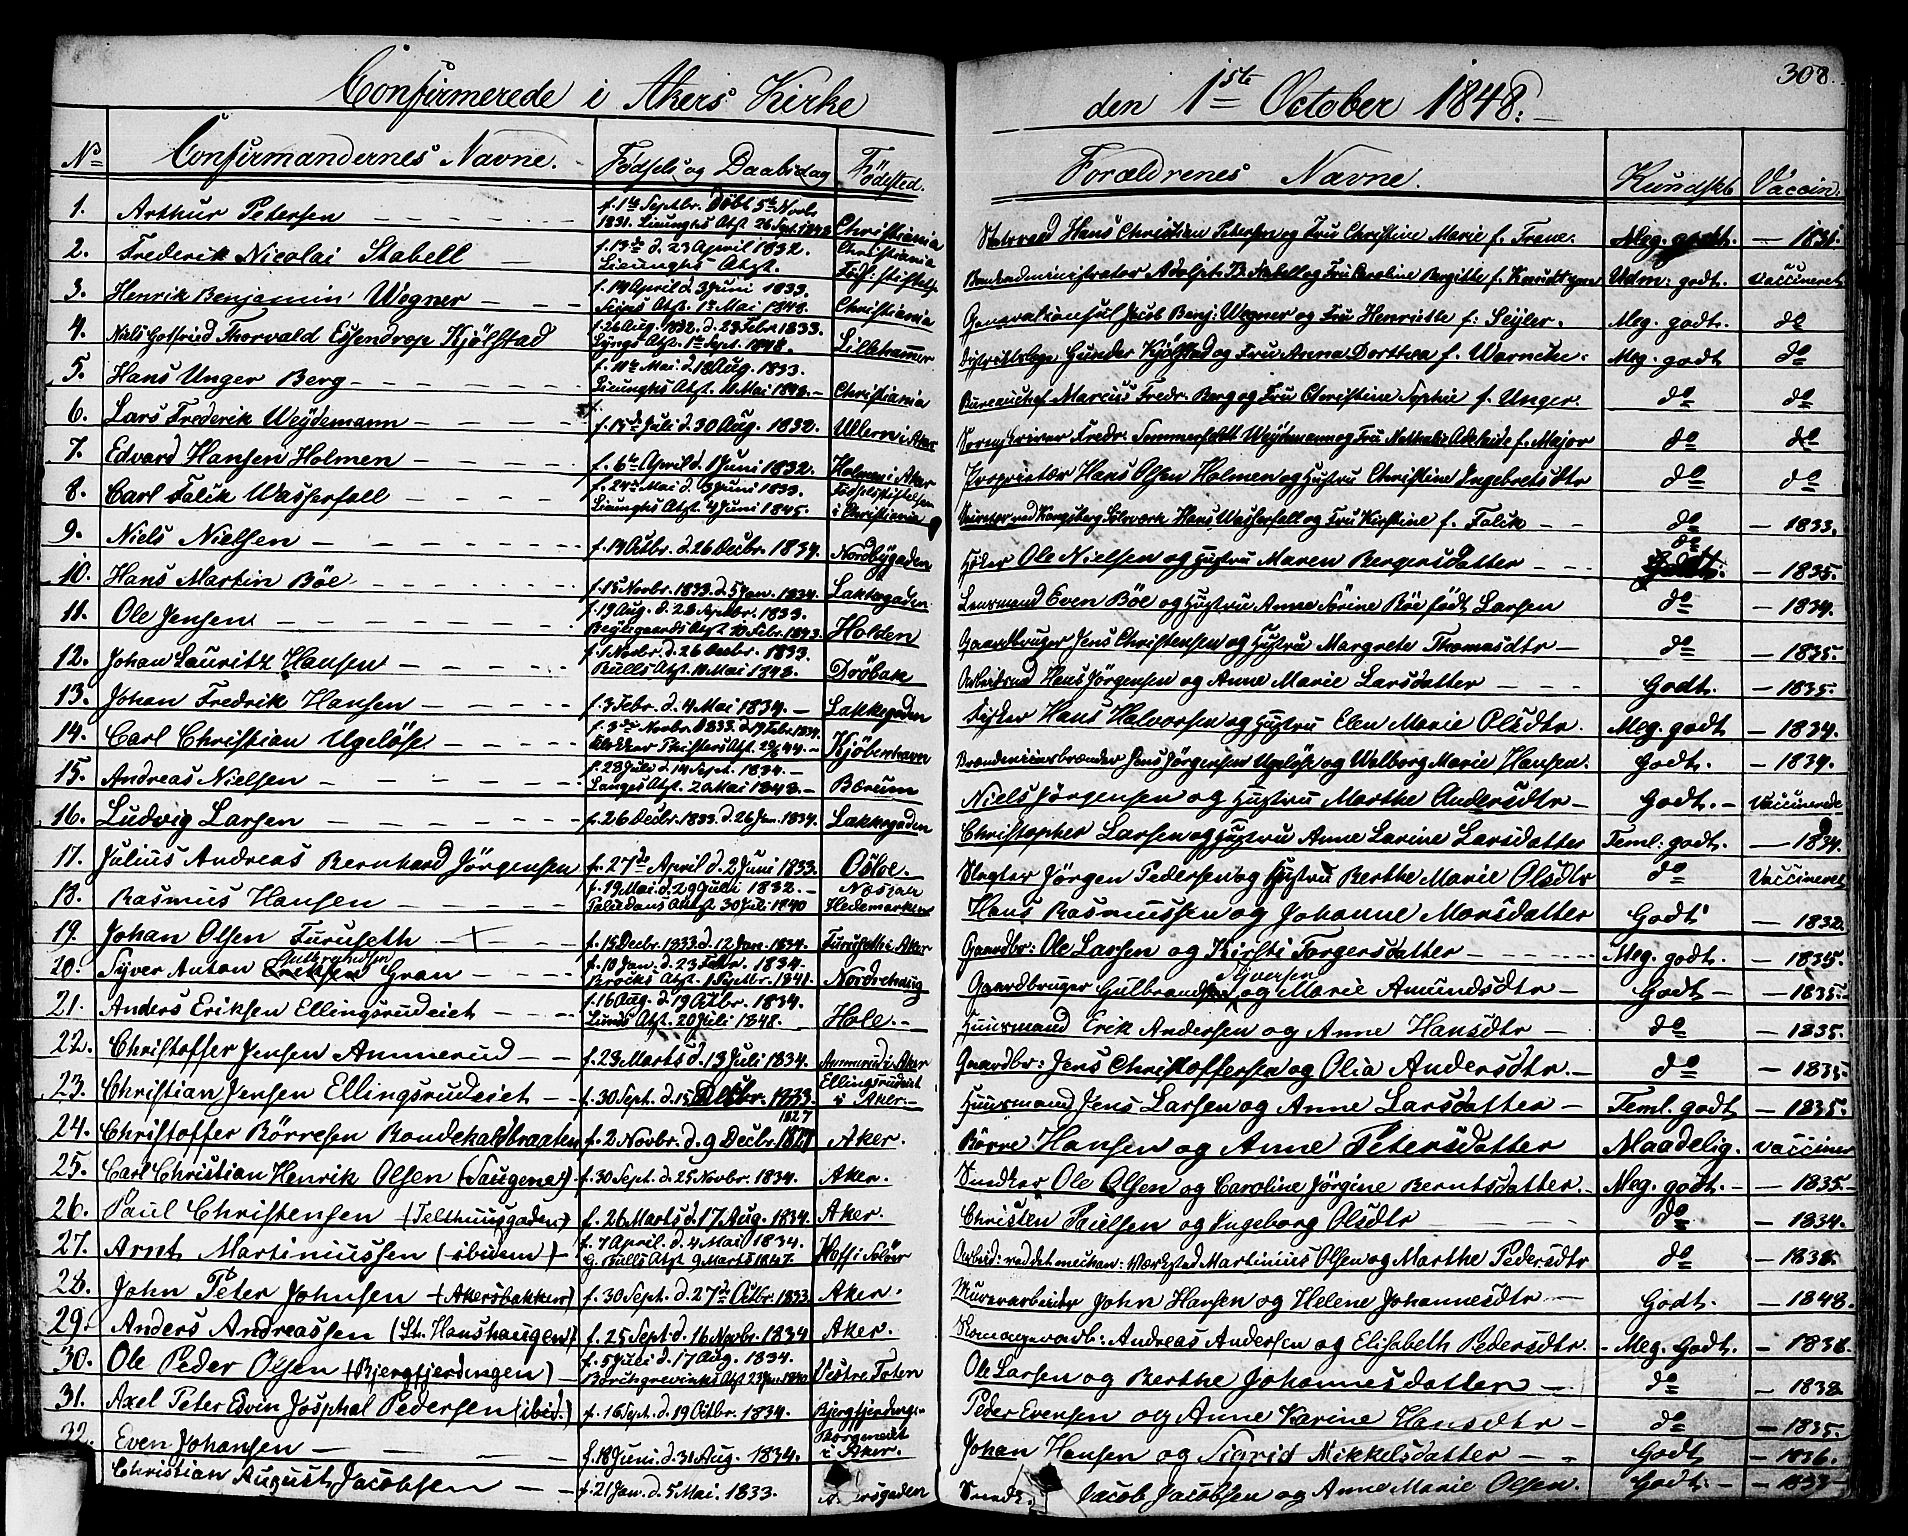 308.
Confirmerede i Akers Kirke den 1ste October 1848.
No Confirmandernes Navne. Fødsels og Daabsdag Fødested. Forældrenes Navne. Kundskb Vaccin:
1. Arthur Petersen f. 1te Septbr. Døbt 5te Novbr 1831. Lieunghs Atst. 26 Sept. 1848 Christiania Statsraad Hans Christian Petersen og Fru Christine Marie f. Trane. Meg. godt. 1831.
2. Frederik Nicolai Stabell f. 13de d. 23 April 1832. Lieunghs Atst. Christiania Adolph B. Stabell og Fru Caroline Bergitte f. Udm: godt. Vaccineret
3. Henrik Benjamin Wegner f. 14 April d. 3 Juni 1833. Atst. 1te Mai 1848. Fød: stiftelse Christiania Generalkonsul Jacob Benj: Wegner og Fru Henriette f: Seyler. Meg. godt. do
4. Niels Gotfried Thorvald Essendrop Kjölstad f. 26 Aug. 1832. d. 23 Febr 1833. Lyngs Atst. 1te Sept. 1848. Lillehammer Distriktslæge Gunder Kjölstad og Fru Anna Dorthea f. Warncke. Meg. godt do
5. Hans Unger Berg f. 11te Mai d. 18 Aug. 1833. Lieunghs Atst. 11 Mai 1848. Christiania Bureauchef Marcus Fredr. Berg og Fru Christine Sophie f. Unger. do do
6. Lars Frederik Weydemann f. 15de Juli d. 30 Aug. 1832. Ullern i Aker Sorenskriver Fredr: Sommerfeldt Weydemann og Fru Nathalie Adelaide f. Major do do
7. Edvard Hansen Holmen f. 6te April d. 1 Juni 1832. Holmen i Aker Proprietær Hans Olsen Holmen og Hustru Christine Ingebretsdtr do do
8. Carl Falik Wasserfall f. 24de Mai d. 3 Juni 1833. Lieunghs Atst. 4 Juni 1845. Fødselsstiftelsen i Christiania Direktør ved Kongsberg Sølvværk Hans Wasserfall og Fru Kirstine f. Falik do 1833.
9. Niels Nielsen f. 14 Octbr. d. 26 Decbr. 1834. Nordbygaden Høker Ole Nielsen og Hustru Maren Bergersdatter do 1835.
10. Hans Martin Böe f. 15 Novbr. 1833. d. 5 Jan. 1834. Lakkegaden Lensmand Even Böe og Hustru Anne Sörine Böe født Larsen do 1834.
11. Ole Jensen f. 19 Aug. d. 28 Septbr. 1833. Atst. 10 Febr. 1843. Holden Gaardbruger Jens Christensen og Hustru Margrete Thomasdtr do 1835.
12. Johan Lauritz Hansen f. 1 Novbr. d. 26 Decbr. 1833. Bulls Atst. 11 Mai 1848. Dröbak Arbeidsmd Hans Jörgensen og Anne Marie Larsdatter Godt. 1835.
13. Johan Fredrik Hansen f. 3 Febr. d. 4 Mai 1834. Lakkegaden Fisker Hans Halvorsen og Hustru Elen Marie Olsdtr. Meg. godt 1834.
14. Carl Christian Ugelöse f. 3die Novbr. 1833. d. 19 Febr 1834. Klokker Atst. 29/6 44. Kjöbenhavn Brændeviinsbrænder Jens Jörgensen Ugelöse og Walborg Marie Hansen. Godt. 1834.
15. Andreas Nielsen f. 28 Juli d. 14 Sept. 1834. Langes Atst. 20 Mai 1848. Bærum Niels Jörgensen og Hustru Marthe Andersdtr Godt. Vaccinerede
16. Ludvig Larsen f. 26 Decbr. 1833. d. 26 Jan. 1834. Lakkegaden Christopher Larsen og Hustru Anne Larine Larsdatter Teml: godt. 1834.
17. Julius Andreas Bernhard Jörgensen f. 27de April d. 2 Juni 1833. Osloe. Slagter Jörgen Pedersen og Hustru Berthe Marie Olsdtr do Vaccineret
18. Rasmus Hansen f. 19 Mai d. 29 Juli 1832. Atst 30 Juli 1840 Hedemarken Hans Rasmussen og Johanne Monsdatter Godt 1832.
19. Johan Olsen Furuseth f. 15 Decbr. 1833. d. 12 Jan. 1834. Furuseth i Aker Gaardbr: Ole Larsen og Kirsti Torgersdatter Meg. godt. 1835.
20. Syver Anton Gulbrandsen Gran f. 10 Jan. d. 23 Febr. 1834. Brocks Atst. 1 Septbr. 1841. Nordrehaug Gaardbruger Gulbrand Syversen og Marie Amundsdtr Godt 1835.
21. Anders Eriksen Ellingsrudeiet f. 16 Aug. d. 19 Octbr. 1834. Lunds Atst. 20 Juli 1848. Hole. Huusmand Erik Andersen og Anne Hansdtr do 1835.
22. Christoffer Jensen Ammerud f. 23 Marts d. 13 Juli 1834. Ammerud i Aker Gaardbr: Jens Christoffersen og Olia Andersdtr. do 1835
23. Christian Jensen Ellingsrudeiet f. 30 Sept. d. 15 Decbr. 1833. Ellingsrudeiet i Aker. Huusmand Jens Larsen og Anne Larsdatter Teml. godt 1835.
24. Christoffer Börresen Rondekolsbraaten f. 2 Novbr. d. 9 Decbr. 1827 Aker. Börre Hansen og Anne Petersdatter Maadelig. Vacciner
25. Carl Christian Henrik Olsen (Saugene) f. 30 Sept. d. 25 Novbr. 1834. Aker. Snedker Ole Olsen og Caroline Jörgine Berntsdatter. Meg. godt. 1835.
26. Paul Christensen (Telthuusgaden) f. 26 Marts d. 17 Aug. 1834. Aker. Christen Paulsen og Ingeborg Olsdtr do 1834.
27. Arnt Martiniussen (ibidem) f. 7 April. d. 4 Mai 1834. G. Bulls Atst 9 Marts 1847. Hoff i Solöer Arbeid: ved det mechan: Værksted Martinius Olsen og Marthe Pedersdtr do 1838.
28. John Peter Johnsen (Akersbakken) f. 30 Sept. d. 27de Octbr. 1833 Aker. Murerarbeider John Hansen og Helene Johannesdtr Godt. 1848.
29. Anders Andreassen (St. Hanshaugen) f. 25 Sept d. 16 Novbr. 1834 Aker. Andreas Andersen og Elisabeth Pedersdtr. Meg. Godt. 1836.
30. Ole Peder Olsen (Bjergfjerdingen) f. 5 Juli d. 17 Aug. 1834. Borchgrevinks Atst 23 Jan. 1840. Vestre Toten Ole Larsen og Berthe Johannesdatter do 1838
31. Axel Peter Edvin Josphal Pedersen (ibid.) f. 16 Sept. d. 19 Octbr. 1834. Bjergfjerding: Peder Evensen og Anne Karine Hansdtr do 1835.
32. Even Johansen f. 18 Juni. d. 31 Aug. 1834. i Aker. Johan Hansen og Sigrid Mikkelsdatter Godt 1836.
Christian August Jacobsen f. 21 Jan. d. 5 Mai. 1833. Jacob Jacobsen og Anne Marie Olsen. Godt. 1833